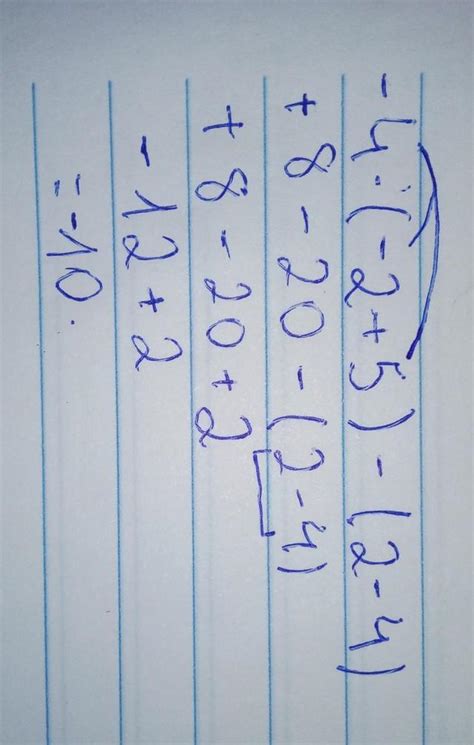 -4·(-2+5)-(2-4)
+8-20-(2-4)
+8-20+2
-12+2
=-10.